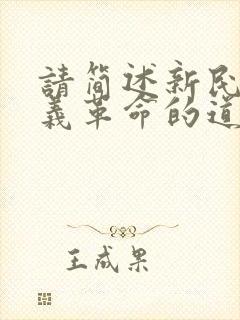 請简述新民
義革命的道
王成果